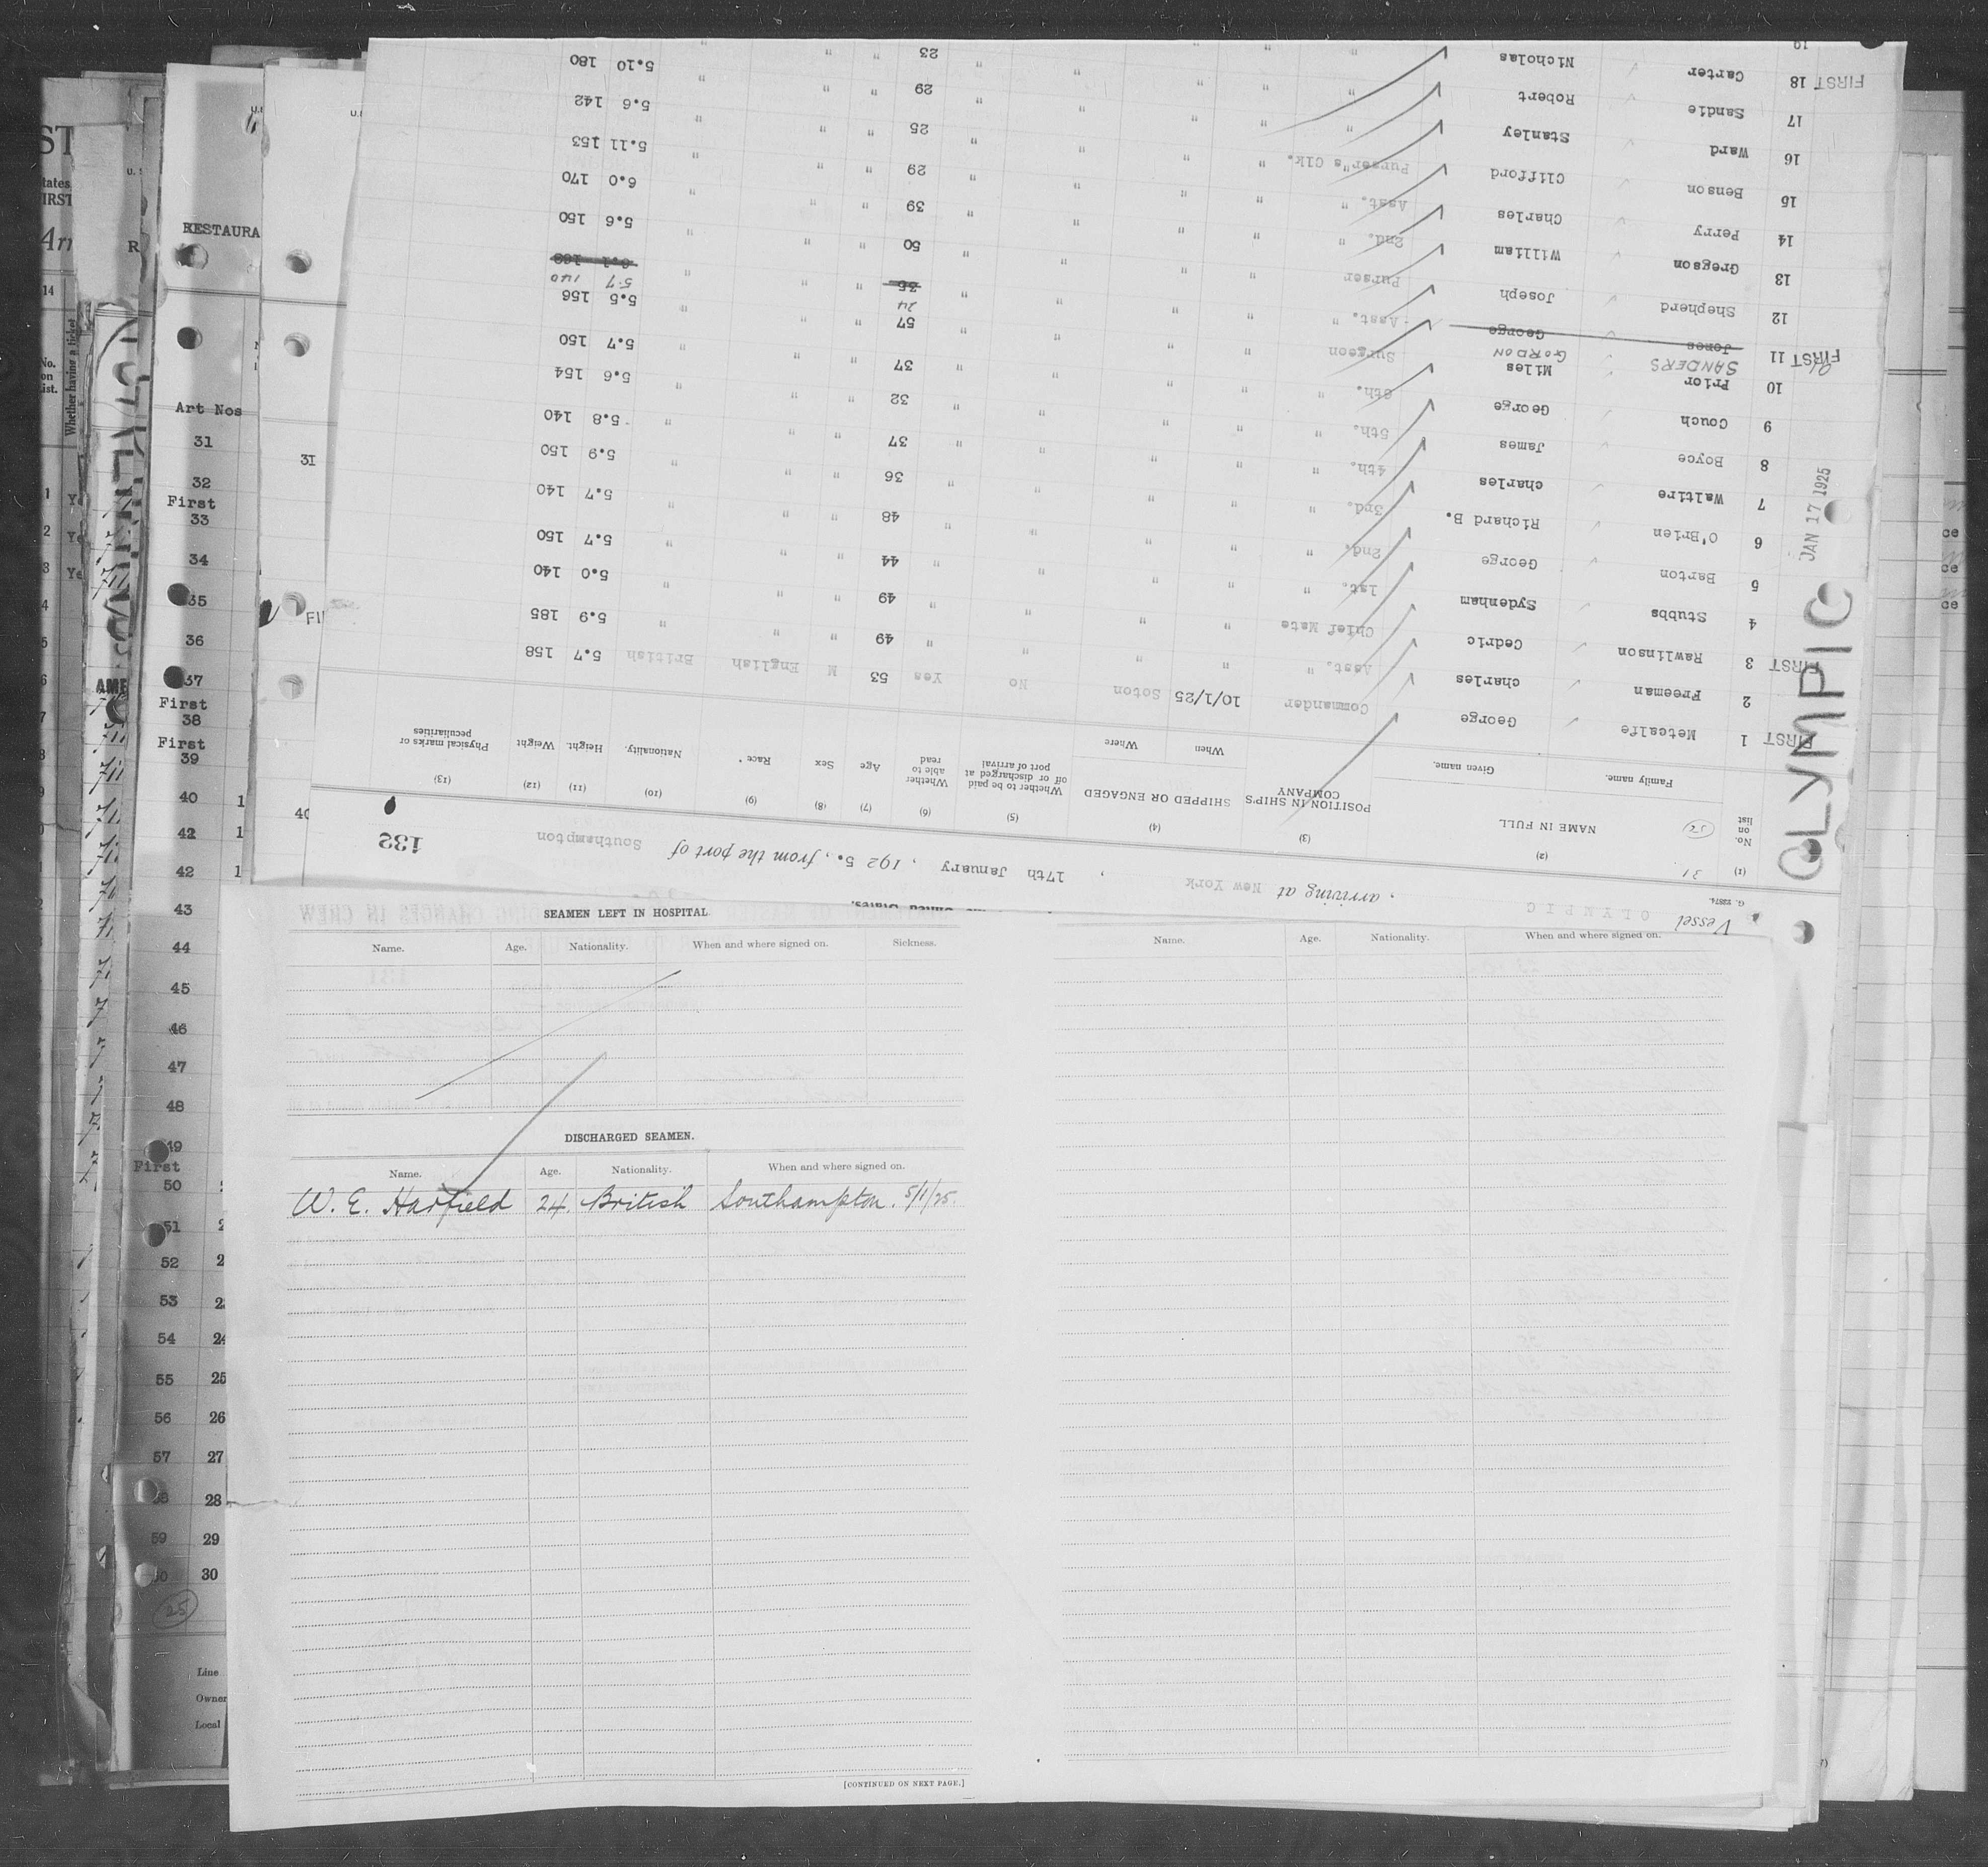 Vessel OLYMPIC , arriving at New York , 17th January , 192 5. , from the port of Southampton
132
OLYMPIC
JAN 17 1925
(1) (2) (3) (4) (5) (6) (7) (8) (9) (10) (11) (12) (13)
No. on list NAME IN FULL POSITION IN SHIP'S COMPANY SHIPPED OR ENGAGED Whether to be paid off or discharged at port of arrival Whether able to read Age Sex Race Nationality. Height. Weight Physical marks or peculiarities
Family name. Given name. When Where
FIRST 1 Metcalfe George Commander 10/1/25 Soton No Yes 53 M English British 5.7 158
2 Freeman charles Asst. " " " " " 49 " " " 5.9 185
FIRST 3 Rawlinson Cedric Chief Mate " " " " 49 " " " 5.0 140
4 Stubbs Sydenham 1st. " " " " " 44 " " " 5.7 150
5 Barton George 2nd. " " " " " 48 " " " 5.7 140
6 O'Brien Richard B. 3rd. " " " " " 36 " " " 5.9 150
7 Waltire charles 4th. " " " " " 37 " " " 5.8 140
8 Boyce James 5th. " " " " " 32 " " " 5.6 154
9 Couch George 6th. " " " " " 37 " " " 5.7 150
10 Prior Miles Surgeon " " " " 57 " " " 5.5 156
FIRST 11 Jones George Asst. " " " " " 35 " " " 6.1 168
SANDERS GORDON 24 5.7 140
12 Shepherd Joseph Purser " " " " 50 " " " 5.6 150
13 Gregson William 2nd. " " " " " 39 " " " 6.0 170
14 Perry Charles Asst. " " " " " 29 " " " 5.11 153
15 Benson Clifford Purser's Clk. " " " " 25 " " " 5.6 142
16 Ward Stanley " " " " " 29 " " " 5.10 180
17 Sandie Robert " " " " " 23 " " "
FIRST 18 Carter Nicholas
19
RESTAURA
Art Nos
31
32
First
33
34
35
36
37
First
38
First
39
40 1
41 1
42 1
43
44
45
46
47
48
49
First
50
51 2
52 2
53 2
54 24
55 25
56 26
57 27
58 28
59 29
60 30
25
Line
Owner
Local
SEAMEN LEFT IN HOSPITAL
Name. Age. Nationality. When and where signed on. Sickness.
DISCHARGED SEAMEN.
Name. Age. Nationality. When and where signed on.
W. E. Harfield 24. British Southampton. 5/1/25.
[CONTINUED ON NEXT PAGE.]
Name. Age. Nationality. When and where signed on.